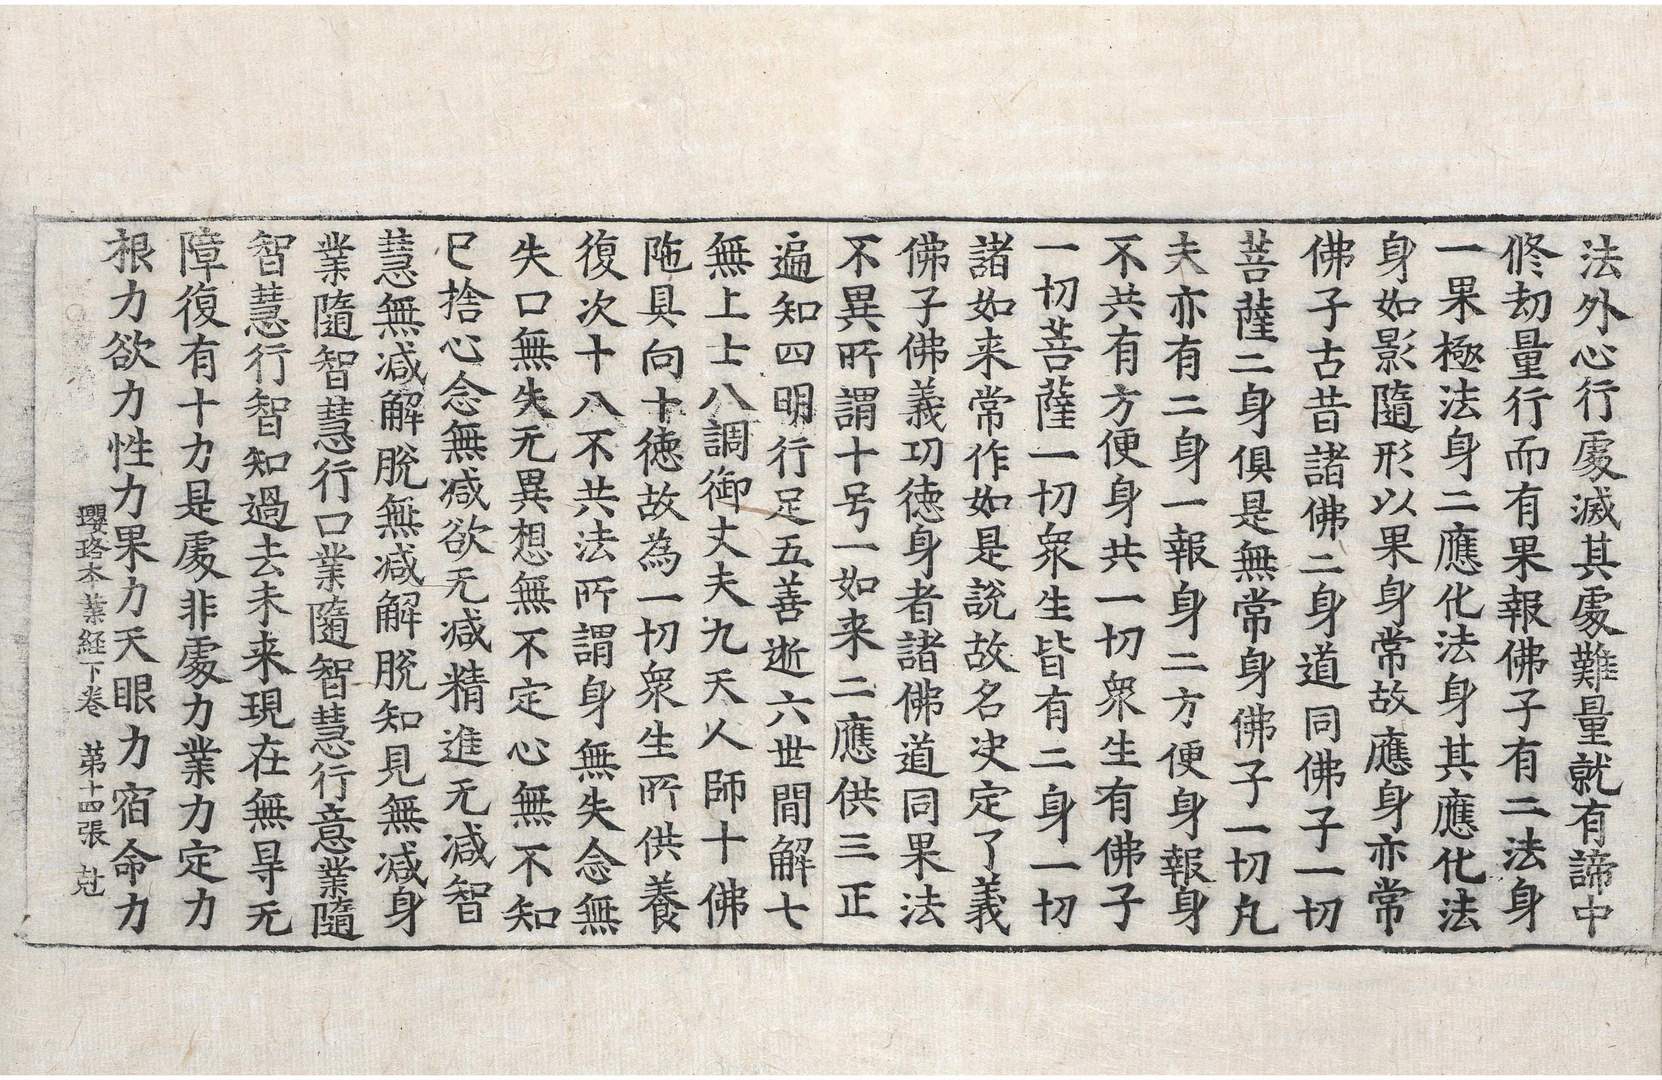 法外心行處滅其處難量就有諦中
修劫量行而有果報佛子有二法身
一果極法身二應化法身其應化法
身如影隨形以果身常故應身亦常
佛子古昔諸佛二身道同佛子一切
菩薩二身俱是無常身佛子一切凡
夫亦有二身一報身二方便身報身
不共有方便身共一切衆生有佛子
一切菩薩一切衆生皆有二身一切
諸如来常作如是說故名决定了義
佛子佛義功德身者諸佛道同果法
不異所謂十号一如来二應供三正
遍知四明行足五善逝六世間解七
無上士八調御丈夫九天人師十佛
陁具向十德故為一切衆生所供養
復次十八不共法所謂身無失念無
失口無失无異想無不定心無不知
已捨心念無减欲无减精進无减智
慧無减解脫無减解脫知見無减身
業隨智慧行口業隨智慧行意業隨
智慧行智知過去未来現在無㝵无
障復有十力是處非處力業力定力
根力欲力性力果力天眼力宿命力
瓔珞本業経下卷 苐十四張 尅